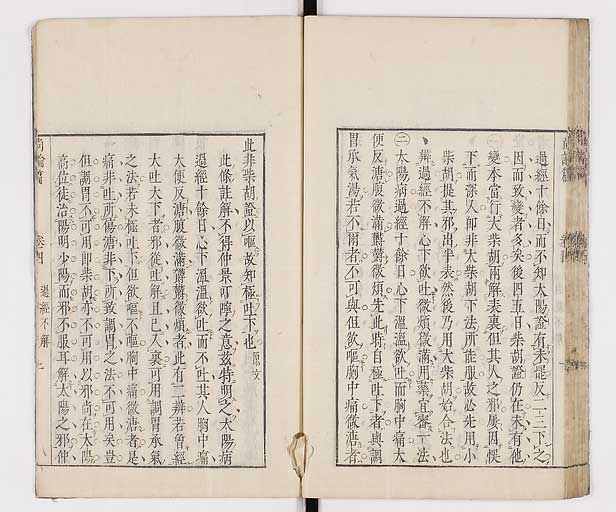 過經十餘日而不知太陽證有未罷反二三下之
因而致變者多矣後四五日柴胡證仍在未有他
變本當行大柴胡兩解表裏但其人之邪屢因悞
下而深入即非大柴胡下法所能服故必先用小
柴胡提其邪出半表然後乃用大柴胡始合法也
辨過經不解心下欲吐微煩微滿用藥宜審一法
㊁太陽病過經十餘日心下溫溫欲吐而胸中痛大
便反溏腹微滿鬱鬱微煩先此時自極吐下者與調
胃承氣湯若不爾者不可與但欲嘔胸中痛微溏者
此非柴胡證以嘔故知極吐下也原文
此條註解不得仲景叮嚀之意茲特明之太陽病
過經十餘日心下溫溫欲吐而不吐其人胸中痛
大便反溏腹微滿鬱鬱微煩者此有二辨若曾經
大吐大下者邪從吐解且已入裏可用調胃承氣
之法若未極吐下但欲嘔不嘔胸中痛微溏者是
痛非吐所傷溏非下所致調胃之法不可用矣豈
但調胃不可用即柴胡亦不可用以邪尚在太陽
高位徒治陽明少陽而邪不服耳解太陽之邪仲
尚論篇
卷四
過經不解